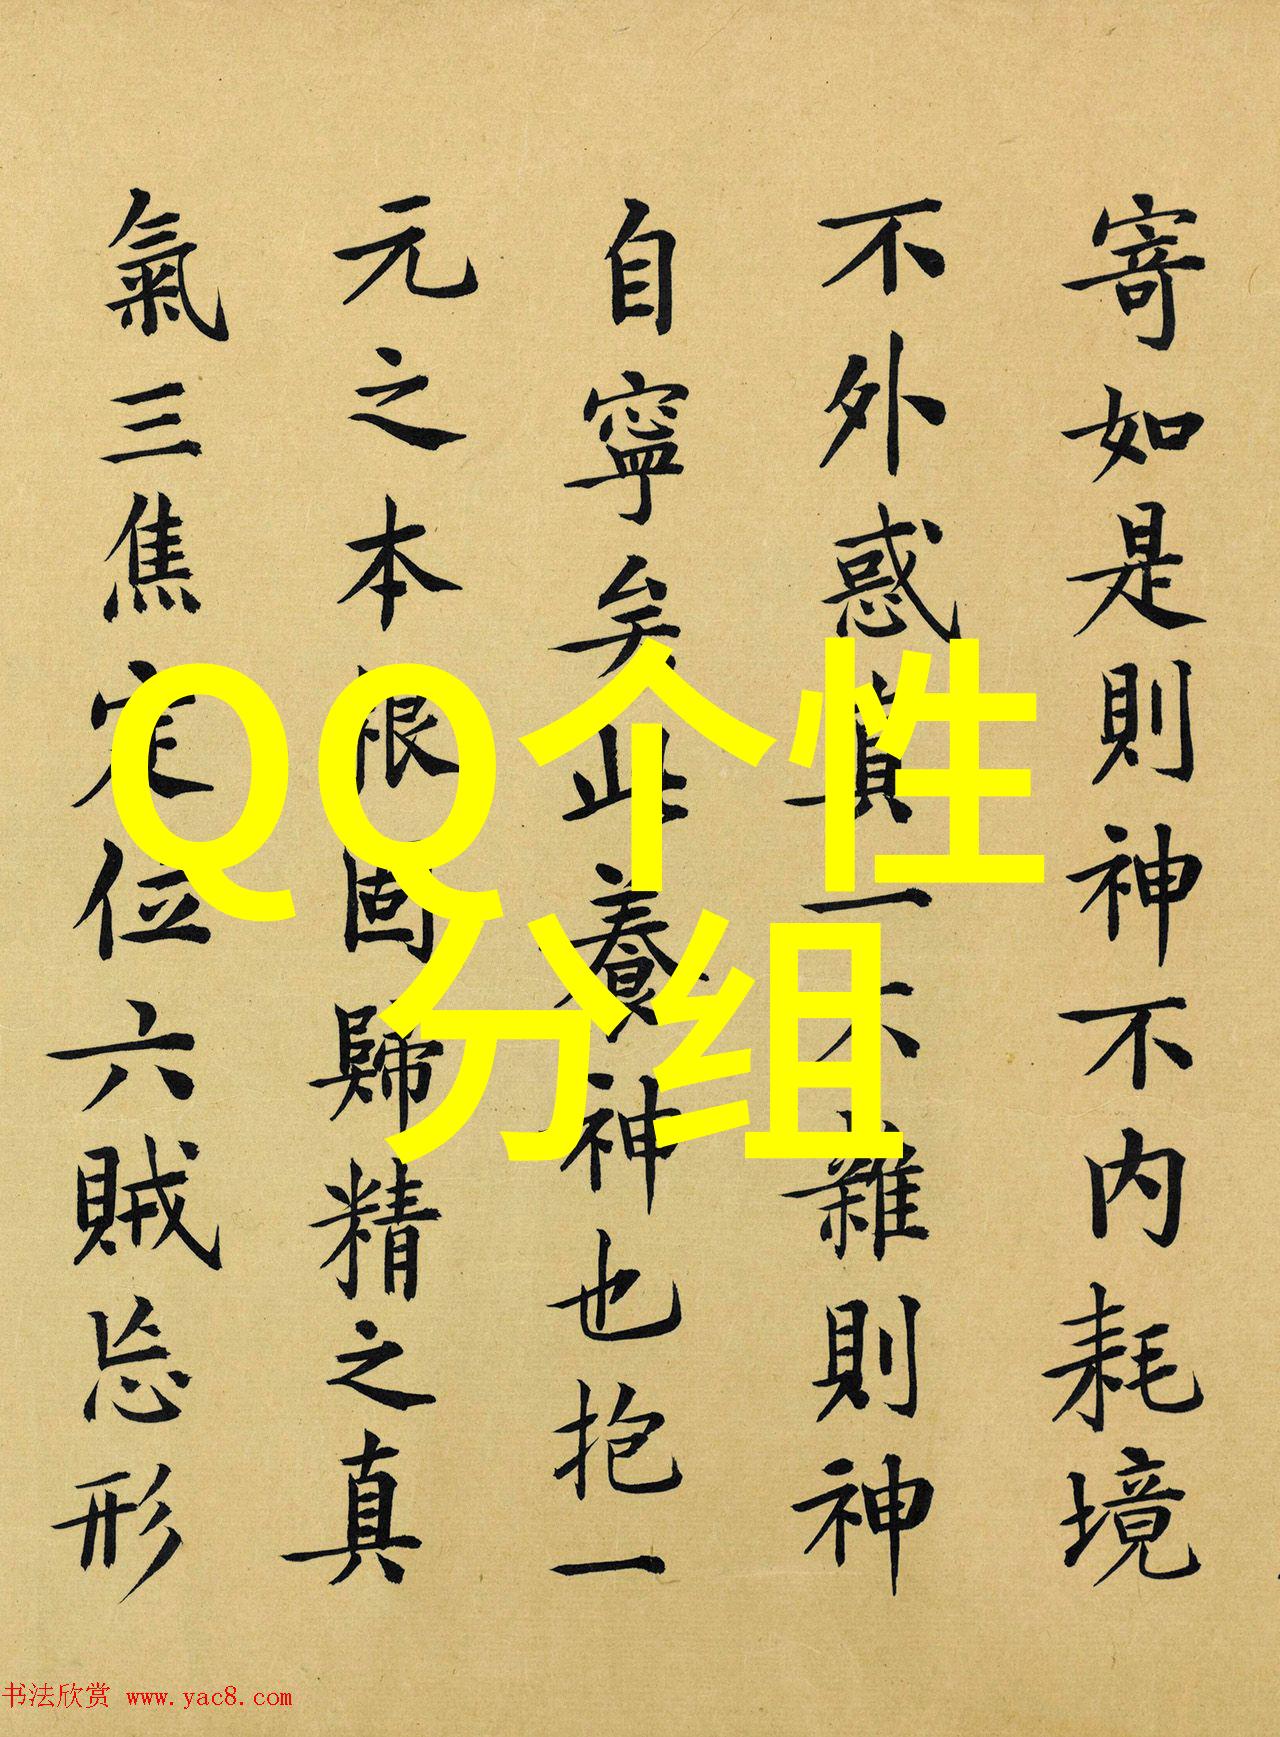 寄如是則神不内耗境
不外惑真一不雜則神
自寧矣此養神也抱一
元之本根固歸精之真
氣三焦定位六賊忘形
QQ个性
分组
书法欣赏 www.yac8.com